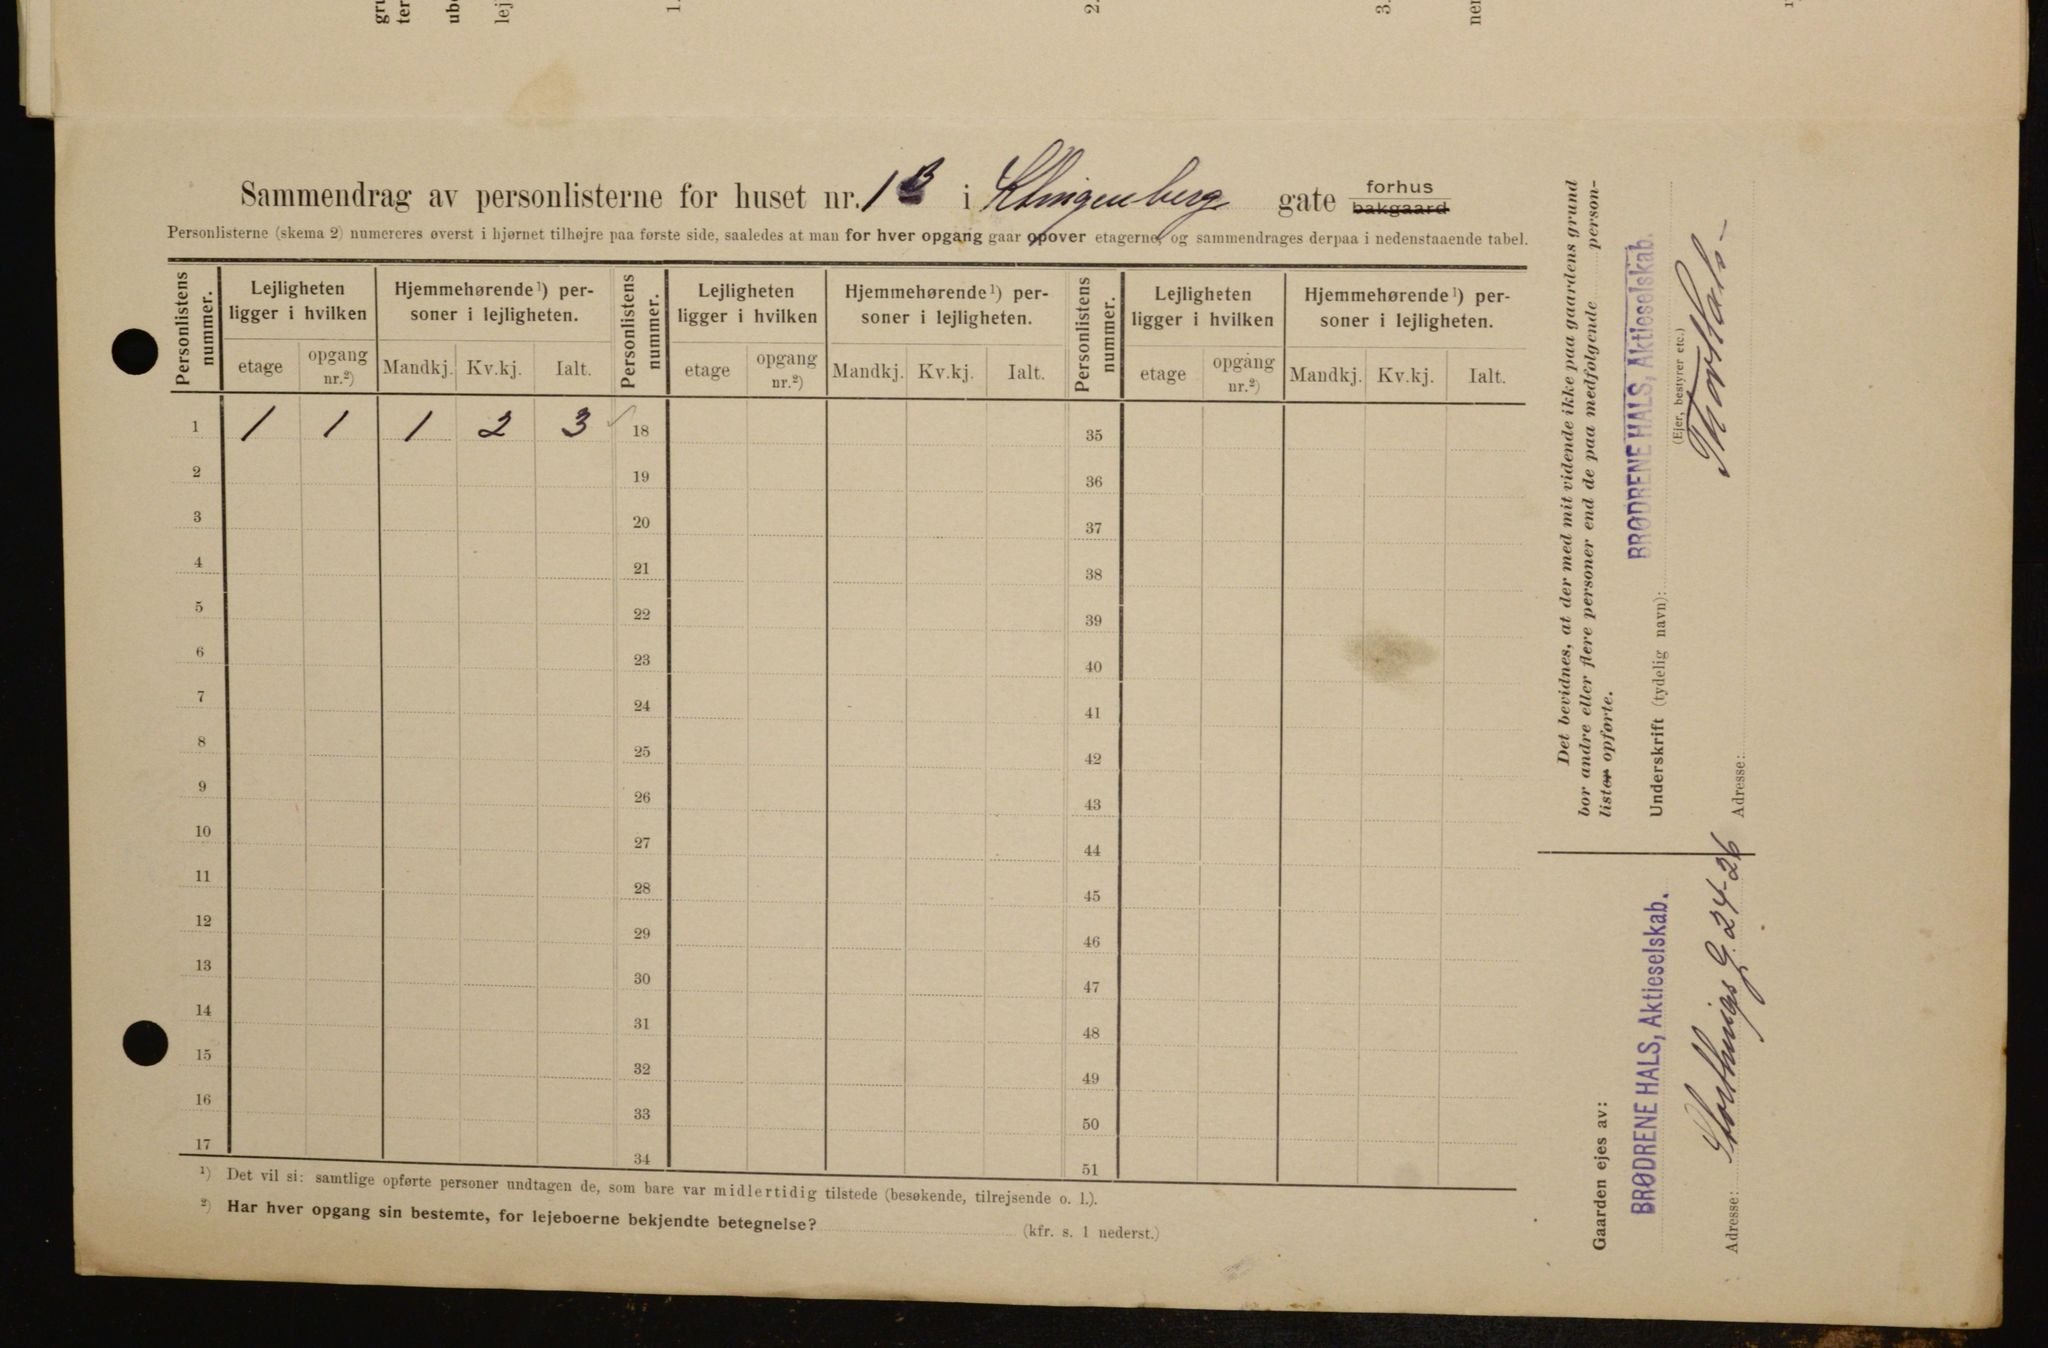 Sammendrag av personlisterne for huset nr. 1 B i Klingenberg gate forhus bakgaard
Personlisterne (skema 2) numereres øverst i hjørnet tilhøjre paa første side, saaledes at man for hver opgang gaar opover etagerne, og sammendrages derpaa i nedenstaaende tabel.
Personlistens nummer. Lejligheten ligger i hvilken Hjemmehørende ¹) personer i lejligheten. Personlistens nummer. Lejligheten ligger i hvilken Hjemmehørende ¹) personer i lejligheten. Personlistens nummer. Lejligheten ligger i hvilken Hjemmehørende ¹) personer i lejligheten.
etage opgang nr.²) Mandkj. Kv.kj. Ialt. etage opgang nr.²) Mandkj. Kv.kj. Ialt. etage opgang nr.²) Mandkj. Kv.kj. Ialt.
1 1 1 1 2 3 18 35
2 19 36
3 20 37
4 21 38
5 22 39
6 23 40
7 24 41
8 25 42
9 26 43
10 27 44
11 28 45
12 29 46
13 30 47
14 31 48
15 32 49
16 33 50
17 34 51
¹) Det vil si: samtlige opførte personer undtagen de, som bare var midlertidig tilstede (besøkende, tilrejsende o. l.).
²) Har hver opgang sin bestemte, for lejeboerne bekjendte betegnelse? (kfr. s. 1 nederst.)
Det bevidnes, at der med mit vidende ikke paa gaardens grund
bor andre eller flere personer end de paa medfølgende person-
lister opførte.
BRØDRENE HALS, Aktieselskab.
Underskrift (tydelig navn):
(Ejer, bestyrer etc.)
Thor Hals
Adresse:
Gaarden ejes av:
BRØDRENE HALS, Aktieselskab.
Adresse: Storthings G. 24-26